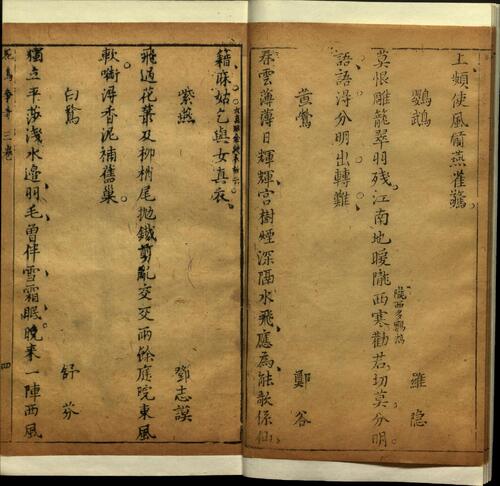 上頻使風簷燕雀驚
鸚鵡
羅隐
莫恨雕籠翠羽残江南地暖隴西寒勸君切莫分明
隴西多鸚鵡
語語得分明出轉難
黄鶯
鄭谷
春雲薄薄日輝輝宮樹煙深隔水飛應為能歌係仙
籍麻姑乞與女真衣
紫燕
鄧志謨
飛過花叢及柳梢尾拋鐵剪亂交交雨餘庭院東風
軟啣得香泥補舊巢
白鷺
舒芬
獨立平莎淺水邉羽毛曽伴雪霜眠晚來一陣西風